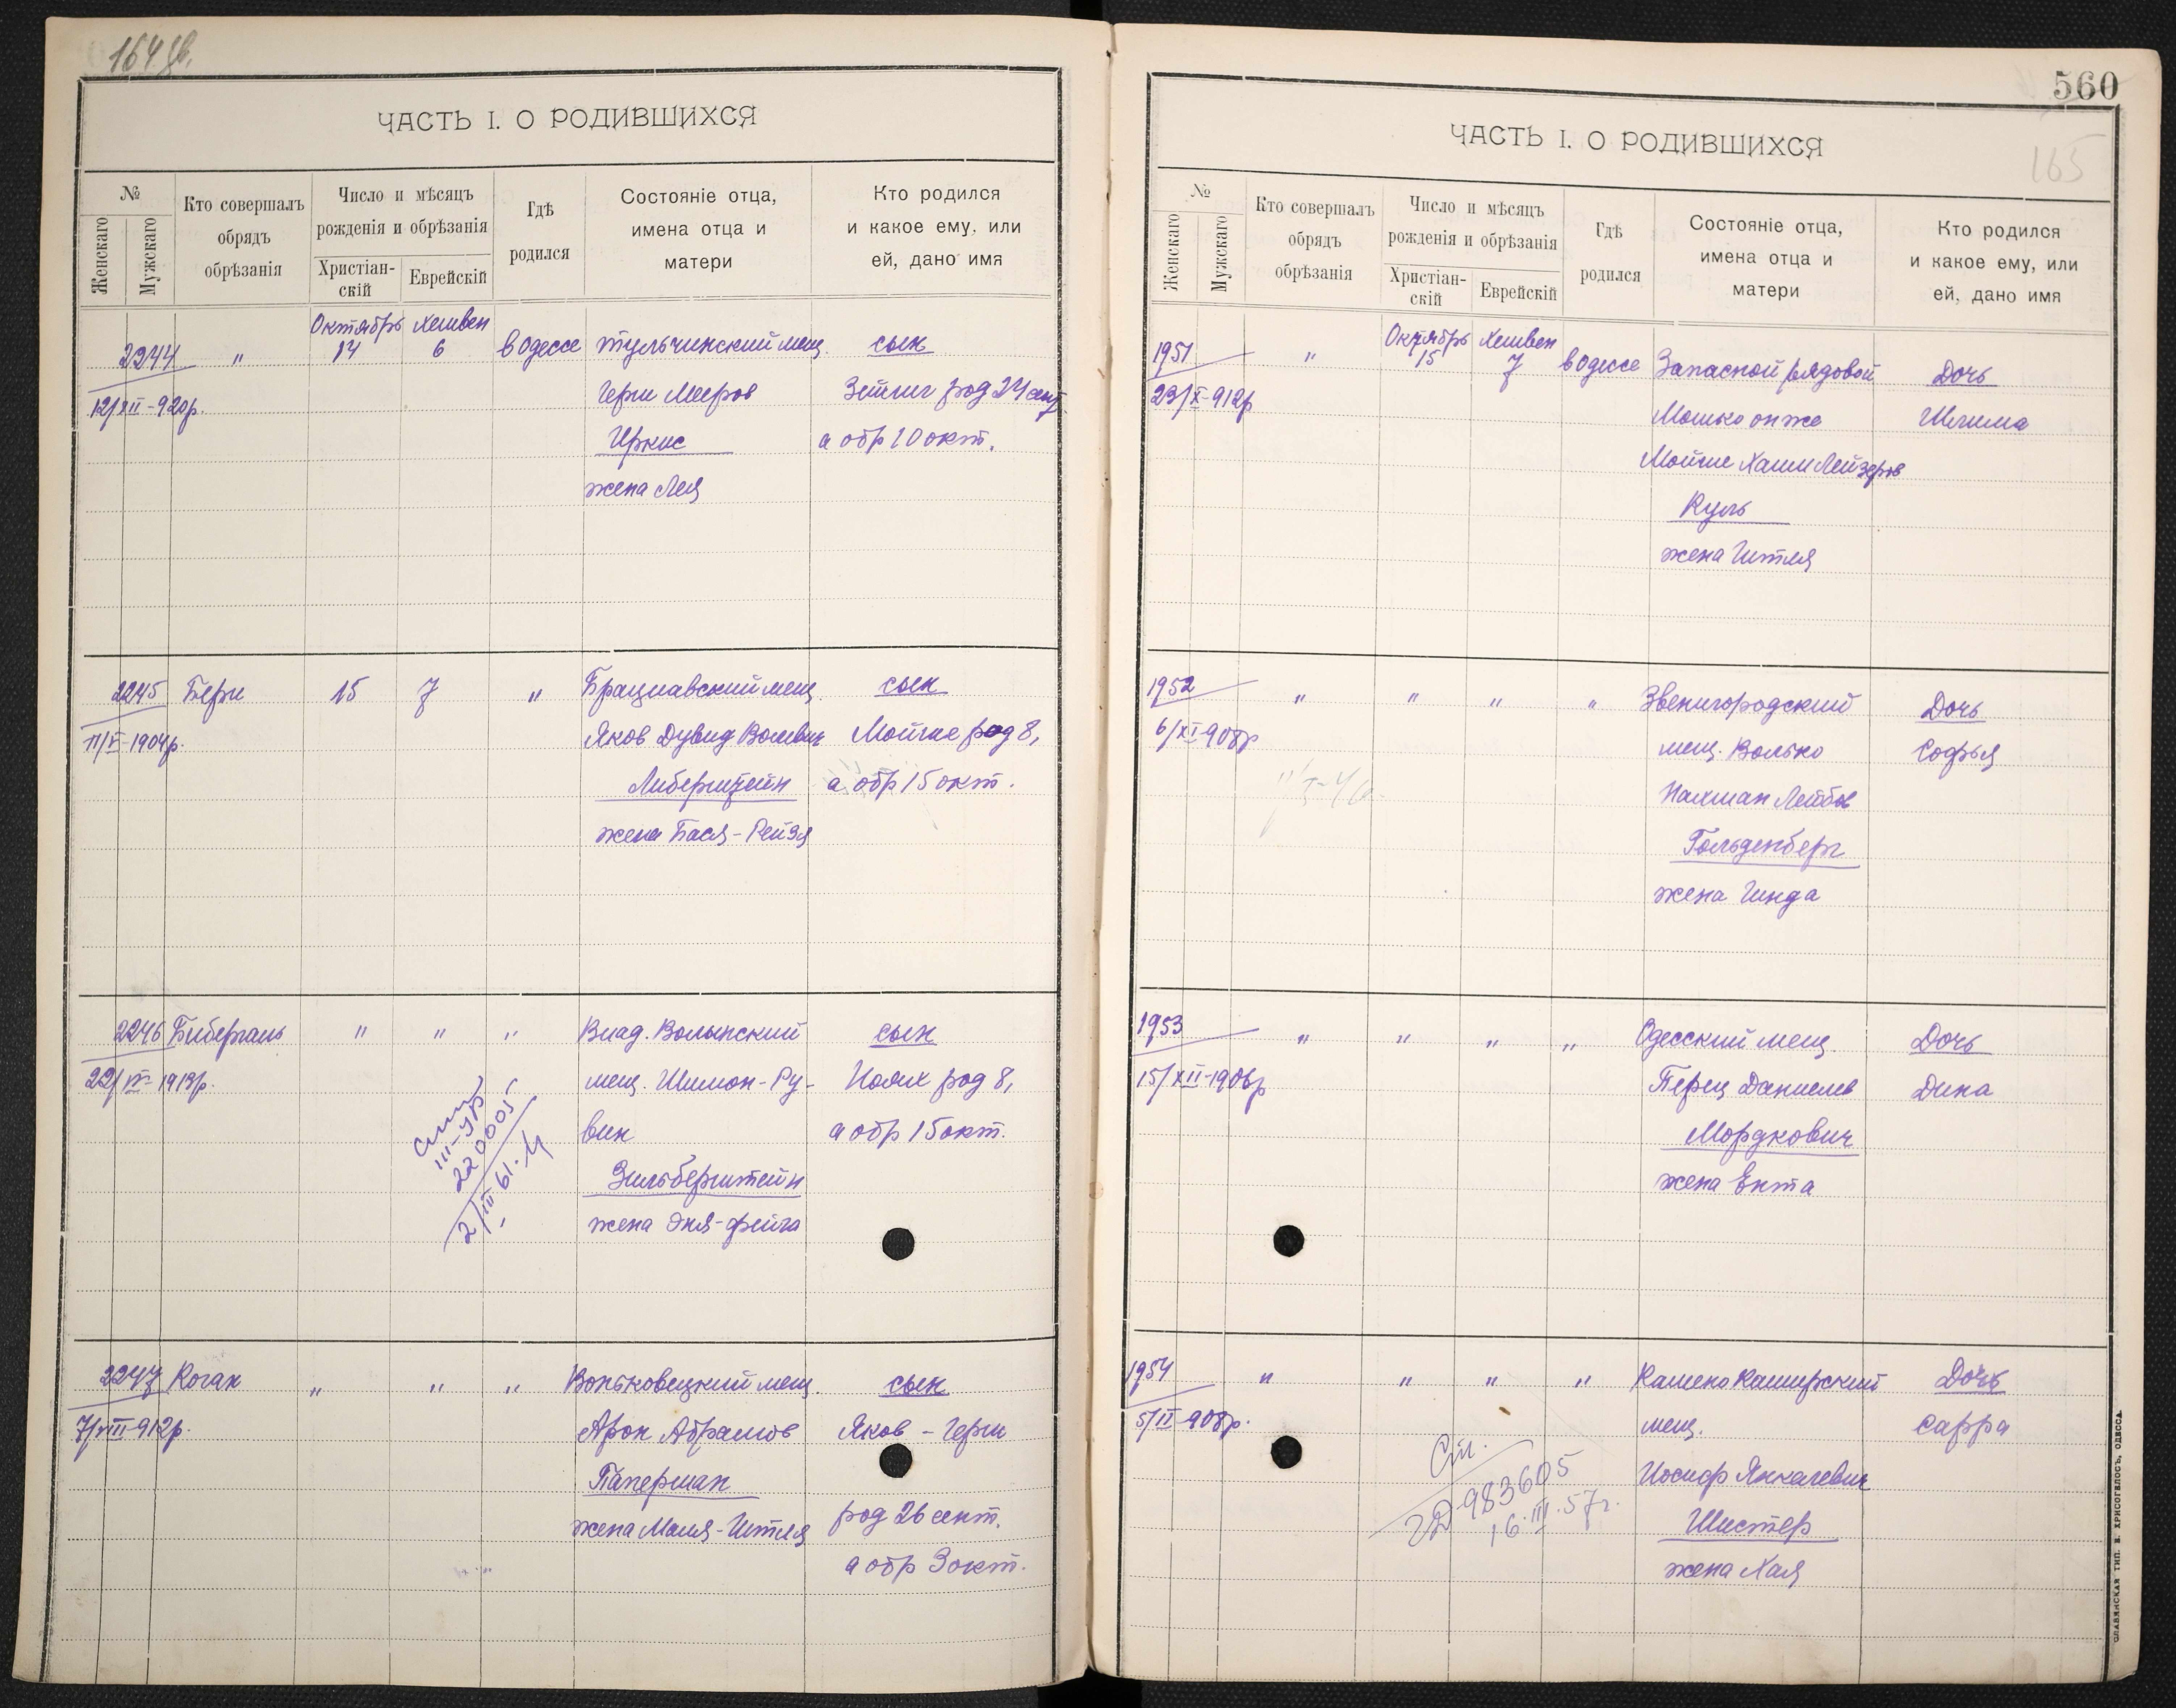 164 об.
ЧАСТЬ I. О РОДИВШИХСЯ
№
Женскаго
Мужскаго
Кто совершалъ
обрядъ
обрѣзанія
Число и мѣсяцъ
рожденія и обрѣзанія
Христіан-
скій
Еврейскій
Гдѣ
родился
Состояніе отца,
имена отца и
матери
Кто родился
и какое ему, или
ей, дано имя
Октябрь Хешвен
2244 " 14 6 в Одессе тульчинский мещ. сын
12/XII-920р. Герш Мееров Зейлиг род 24 сент
Иркис а обр 10 окт.
жена Лея
2245 Берн 15 7 " Брацлавский мещ. сын
11/V-1904р. Яков Дувид Волевич Мойше род 8,
Либерштейн а обр 15 окт.
жена Бася-Рейзя
2246 Бибергаль " " " Влад. Волынский сын
22/IV-1913р. мещ. Шимон-Ру- Иоях род 8,
вин а обр 15 окт.
Зильберштейн
жена Эня-фейга
III-УР
220005
2/III 61.
2247 Коган " " " Воньковецкий мещ. сын
7/VIII-912р. Арон Абрамов Яков-Герш
Паперман
жена Маля-Гитля род 26 сент.
а обр 3 окт.
560
165
ЧАСТЬ I. О РОДИВШИХСЯ
№
Женскаго
Мужскаго
Кто совершалъ
обрядъ
обрѣзанія
Число и мѣсяцъ
рожденія и обрѣзанія
Христіан-
скій
Еврейскій
Гдѣ
родился
Состояніе отца,
имена отца и
матери
Кто родился
и какое ему, или
ей, дано имя
Октябрь Хешвен
1951 " 15 7 в Одессе Запасной рядовой Дочь
23/X-912р Мошко он же Шлима
Мойше Хаим Лейзеров
Куль
жена Гитля
1952 " " " " Звенигородский Дочь
6/XI-908р мещ. Волько Софья
Нахман Лейбов
Гольденберг
жена Гинда
1953 " " " " Одесский мещ. Дочь
15/XII-1906р Перец Даниелев Дина
Мордкович
жена Ента
1954 " " " " Камено Каширский Дочь
5/II-908р. мещ. Сарра
Иосиф Янкелевич
Шистер
жена Хая
983605
16.III.57г.
СЛАВЯНСКАЯ ТИП. Н. ХРИСОГЕЛОСЪ, ОДЕССА.